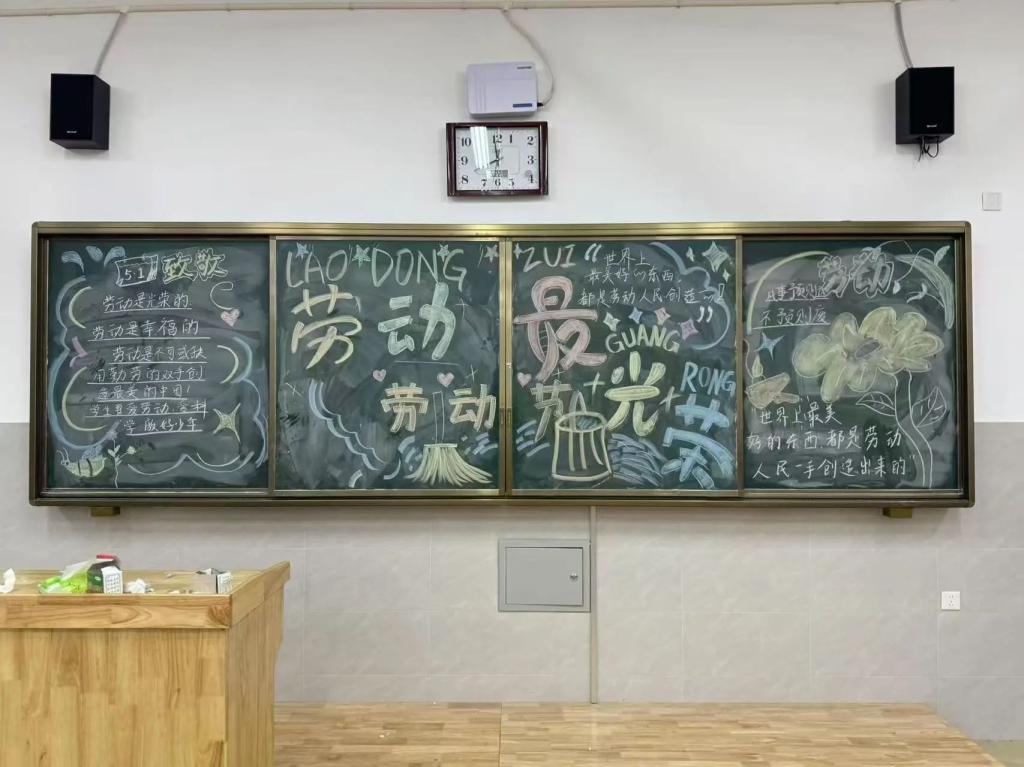 5.1 致敬
劳动是光荣的
劳动是幸福的
劳动是不可或缺
用勤劳的双手创
造最美的中国!
学生热爱劳动
学做好少年
LAO DONG
劳动
劳动
ZUI
最
“世界上
最美好的东西
都是劳动人民创造
GUANG
劳 光
RONG
荣
劳动
凡事预则立
不预则废
世界上最美
好的东西都是劳动
人民一手创造出来的”
10 12 1 2
9 3
8 7 6 5 4